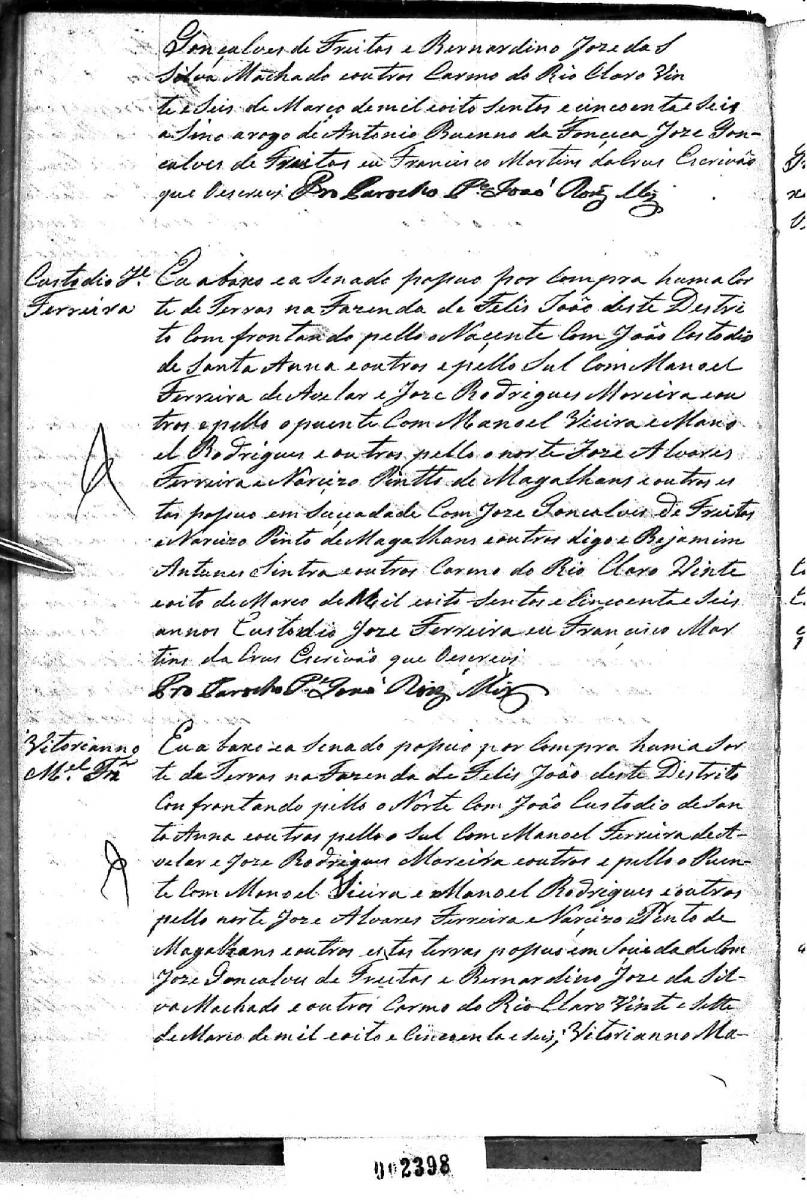 Gonçalves de Freitas e Bernardino Joze da S
Silva Machado e outros Carmo do Rio Claro Vin
te e Seis de Março de mil e oito Sentos e cincoenta e Seis
a Sino arogo de Antonio Buenno da Fonçeca Joze Gon-
calves de Freitas eu Francisco Martins da Crus Escrivão
que Oescrevi Pro Parocho Pe João Roiz
Custodio Je.
Ferreira
Eu abaxo ea Senado posuo por Compra huma Cor
te de Terras na Fazenda de Felis João deste Destri
to Comfrontando pello o Naçente Com João Custodio
de Santa Anna e outros e pello Sul Com Manoel
Ferreira de Avelar e Joze Rodrigues Moreira e ou
tros e pello o puente Com Manoel Vieira e Mano
el Rodrigues e outros pello o norte Joze Alvares
Ferreira e Narcizo Pintto de Magalhans e outros es
tas posuo em Suciadade Com Joze Goncalves de Freitas
e Narcizo Pinto de Magalhans e outros digo e Bejamim
Antunes Sintra e outros Carmo do Rio Claro Vinte
e oito de Marco de Mil e oito Sentos e Cincoenta e Seis
annos Custodio Joze Ferreira eu Françisco Mar
tins da Crus Escrivão que Oescrevi
Pro Parocho Pe João Roiz
Vitorianno
Mel. Frz
Eu abaxo ea Senado posuio por Compra huma Sor
te de Terras na Fazenda de Felis João deste Distrito
Confrontando pello o Norte Com João Custodio de San
ta Anna e outros pello o Sul Com Manoel Ferreira de A-
velar e Joze Rodrigues Moreira e outros e pello o Puen-
te Com Manoel Vieira e Manoel Rodrigues e outros
pello norte Joze Alvares Ferreira e Narcizo Pinto de
Magalhans e outros estas terras posuo em Souciedade Com
Joze Goncalves de Freitas e Bernardino Joze da Sil-
va Machado e outros Carmo do Rio Claro Vinte e Sette
de Marco de mil e oito e Cincoenta e Seis, Vitorianno Ma-
002398